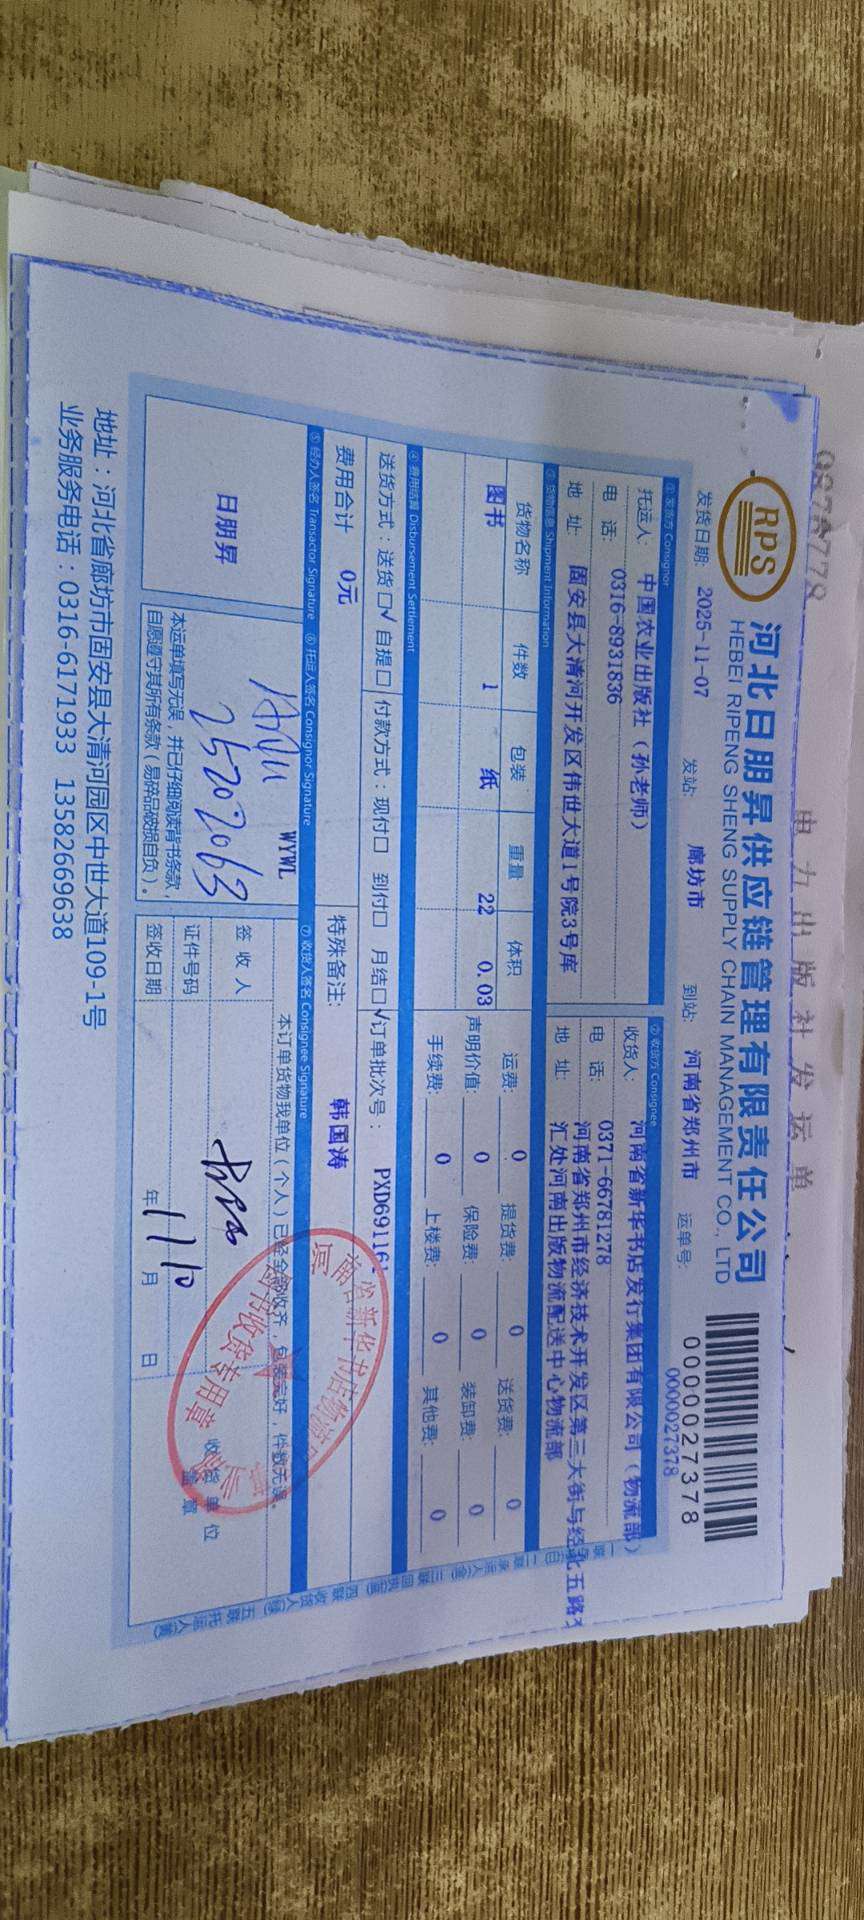 电力出版社发运单
RPS
河北日朋昇供应链管理有限责任公司
HEBEI RIPENG SHENG SUPPLY CHAIN MANAGEMENT CO., LTD
0000027378
发货日期: 2025-11-07 发站: 廊坊市 到站: 河南省郑州市 运单号: 0000027378
① 发货方 Consignor ② 收货方 Consignee
托运人: 中国农业出版社（孙老师） 收货人: 河南省新华书店发行集团有限公司（物流部）
电 话: 0316-8931836 电 话: 0371-66781278
地 址: 固安县大清河开发区伟世大道1号院3号库 地 址: 河南省郑州市经济技术开发区第三大街与经北五路交
汇处河南出版物流配送中心物流部
③ 货物信息 Shipment Information
货物名称 件数 包装 重量 体积 运费: 0 提货费: 0 送货费: 0
图书 1 纸 22 0.03 声明价值: 0 保险费 0 装卸费: 0
手续费: 0 上楼费: 0 其他费: 0
④ 费用结算 Disbursement Settlement
送货方式：送货□√ 自提□ 付款方式：现付□ 到付□ 月结□√ 订单批次号： PXD69116
费用合计 0元 特殊备注: 韩国涛
⑤ 经办人签名 Transactor Signature ⑥ 托运人签名 Consignor Signature ⑦ 收货人签名 Consignee Signature
日朋昇
WYWL
25202063
本运单填写无误，并已仔细阅读背书条款，
自愿遵守其所有条款（易碎品破损自负）。
本订单货物我单位（个人）已经全部收齐，包装完好，件数无误。
签 收 人
证件号码
签收日期 年 11 月 10 日
收 货 单 位
盖 章
河南省新华书店
收货专用章
地址：河北省廊坊市固安县大清河园区中世大道109-1号
业务服务电话：0316-6171933 13582669638